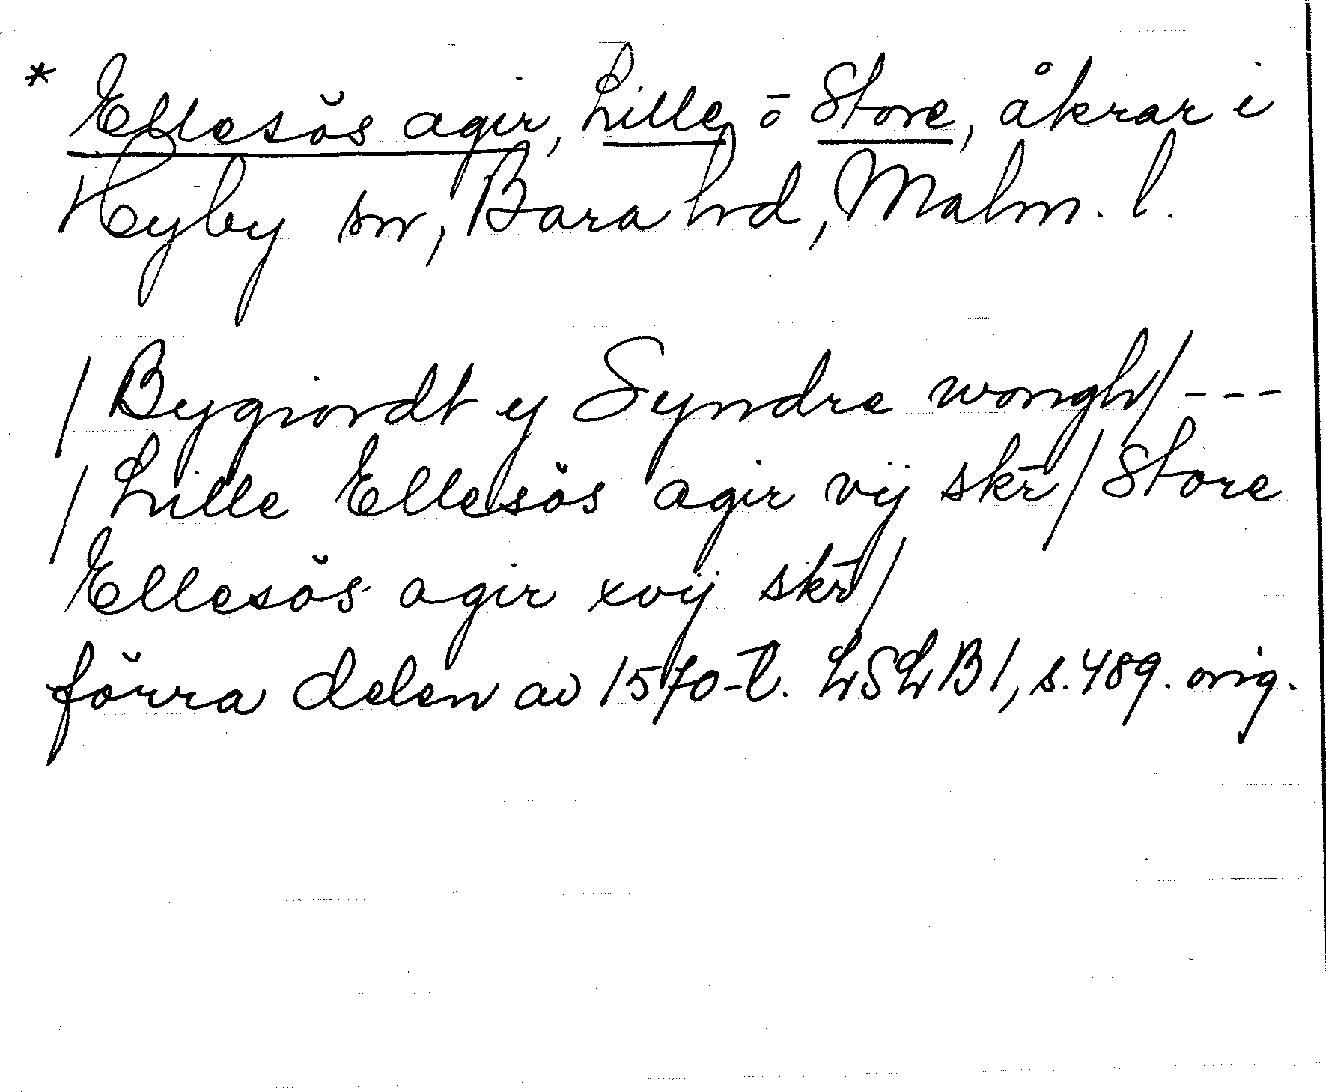 * Ellesös agir, Lille o Store, åkrar i
Hyby sn, Bara hd, Malm. l.
/ Bygiordt y Syndre wongh / ---
/ Lille Ellesös agir vij skr̄ / Store
Ellesös agir xvij skr̄ /
förra delen av 1570-t. LSLB 1, s. 489. orig.